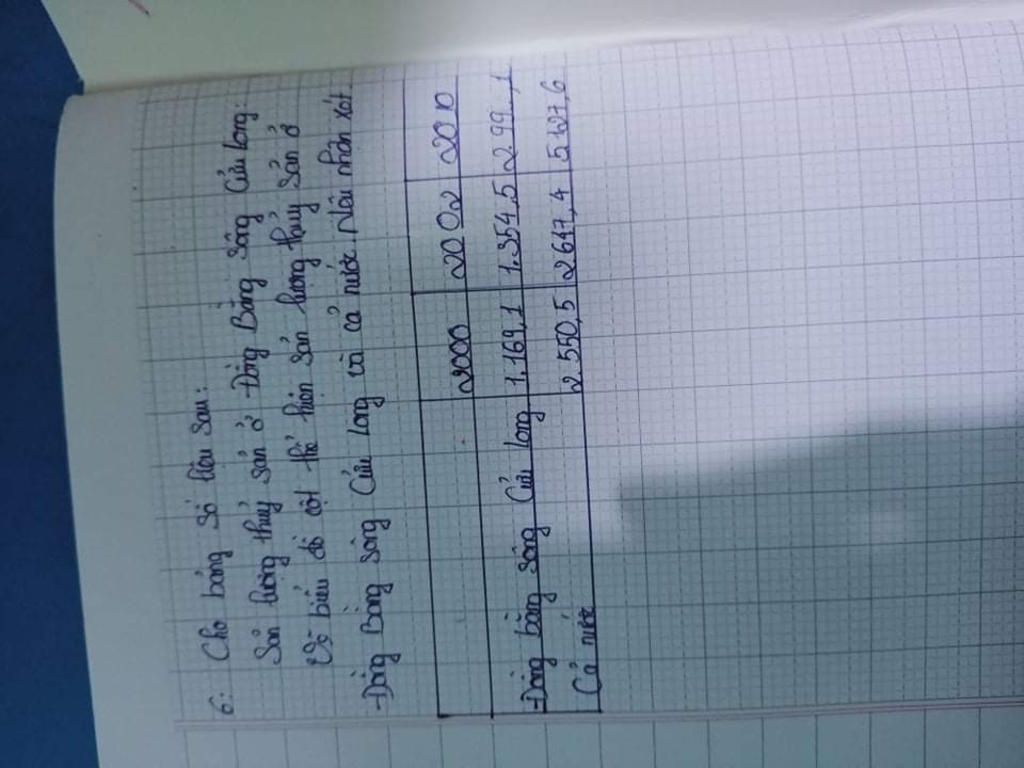 6: Cho bảng số liệu sau:
Sản lượng thuỷ sản ở Đồng Bằng Sông Cửu Long:
Vẽ biểu đồ cột thể hiện sản lượng thuỷ sản ở
Đồng Bằng Sông Cửu Long và cả nước. Nêu nhận xét
2000 2002 2010
Đồng bằng sông Cửu Long 1.169,1 1.354,5 2.99.,1
Cả nước 2.550,5 2647,4 5127,6